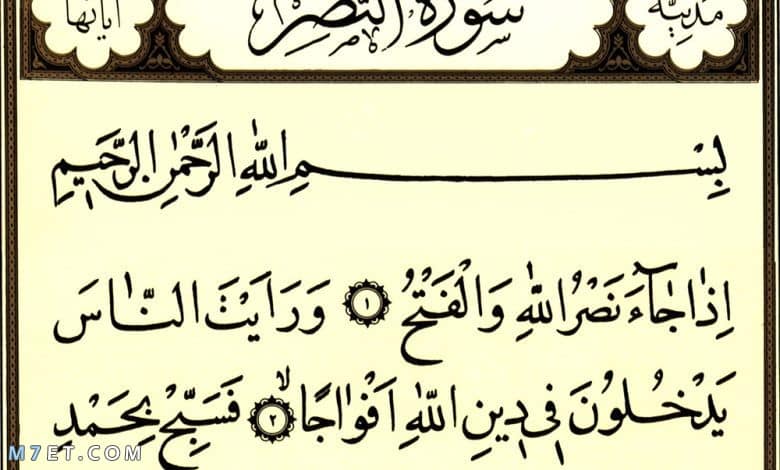 مدنية سورة النصر آياتها
بِسْمِ اللّٰهِ الرَّحْمٰنِ الرَّحِيمِ
اِذَا جَٓاءَ نَصْرُ اللّٰهِ وَالْفَتْحُ ١ وَرَاَيْتَ النَّاسَ
يَدْخُلُونَ فٖى دٖينِ اللّٰهِ اَفْوَاجًاۙ ٢ فَسَبِّحْ بِحَمْدِ
M7ET.COM